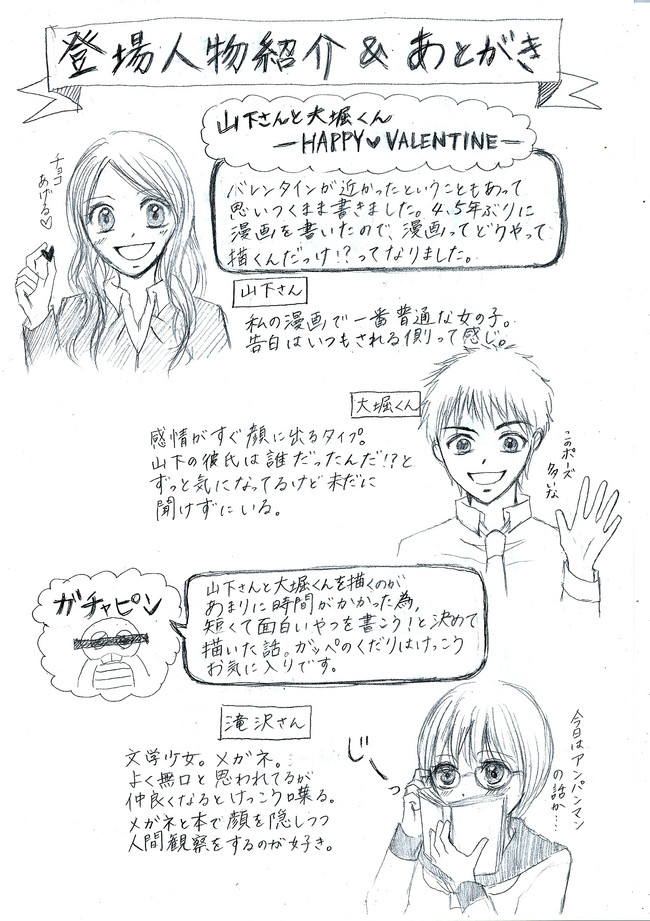 登場人物紹介 & あとがき
山下さんと大堀くん
—HAPPY♥VALENTINE—
チョコ
あげる♡
バレンタインが近かったということもあって
思いつくまま書きました。4、5年ぶりに
漫画を書いたので、漫画ってどうやって
描くんだっけ!?ってなりました。
山下さん
私の漫画で一番普通な女の子。
告白はいつもされる側って感じ。
大堀くん
感情がすぐ顔に出るタイプ。
山下の彼氏は誰だったんだ!?と
ずっと気になってるけど未だに
聞けずにいる。
このポーズ
多いな
ガチャピン
山下さんと大堀くんを描くのが
あまりに時間がかかった為、
短くて面白いやつを書こう!と決めて
描いた話。ガッペのくだりはけっこう
お気に入りです。
滝沢さん
文学少女。メガネ。
よく無口と思われてるが
仲良くなるとけっこう喋る。
メガネと本で顔を隠しつつ
人間観察をするのが好き。
じーっ
今日はアンパンマン
の話か…